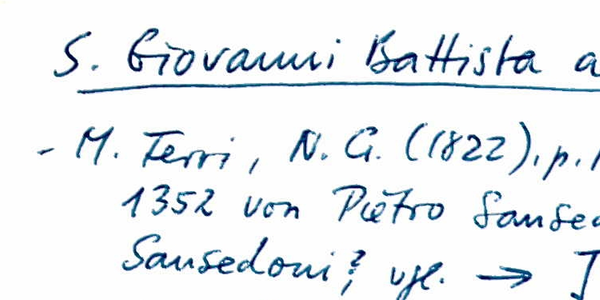 S. Giovanni Battista a
- M. Ferri, N. G. (1822), p. 1
1352 von Pietro Sansed
Sansedoni?, vgl. → I